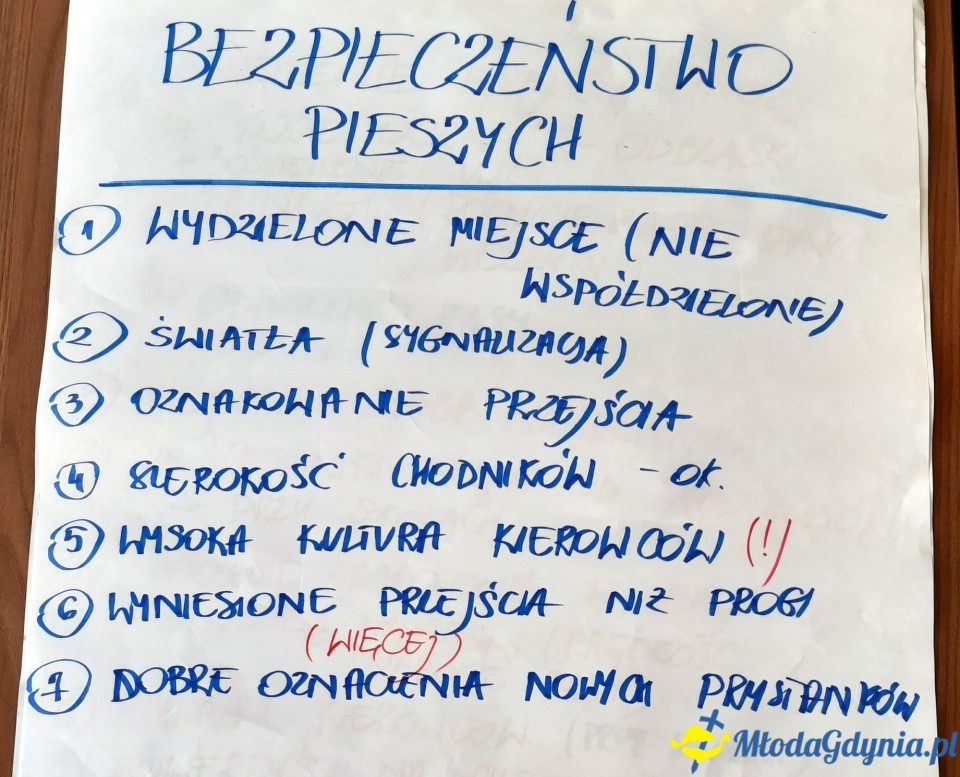 BEZPIECZEŃSTWO
PIESZYCH
1 WYDZIELONE MIEJSCE (NIE
WSPÓŁDZIELONE)
2 ŚWIATŁA (SYGNALIZACJA)
3 OZNAKOWANIE PRZEJŚCIA
4 SZEROKOŚĆ CHODNIKÓW - OK.
5 WYSOKA KULTURA KIEROWCÓW (!)
6 WYNIESIONE PRZEJŚCIA NIŻ PROGI
(WIĘCEJ)
7 DOBRE OZNACZENIA NOWYCH PRZYSTANKÓW
MłodaGdynia.pl